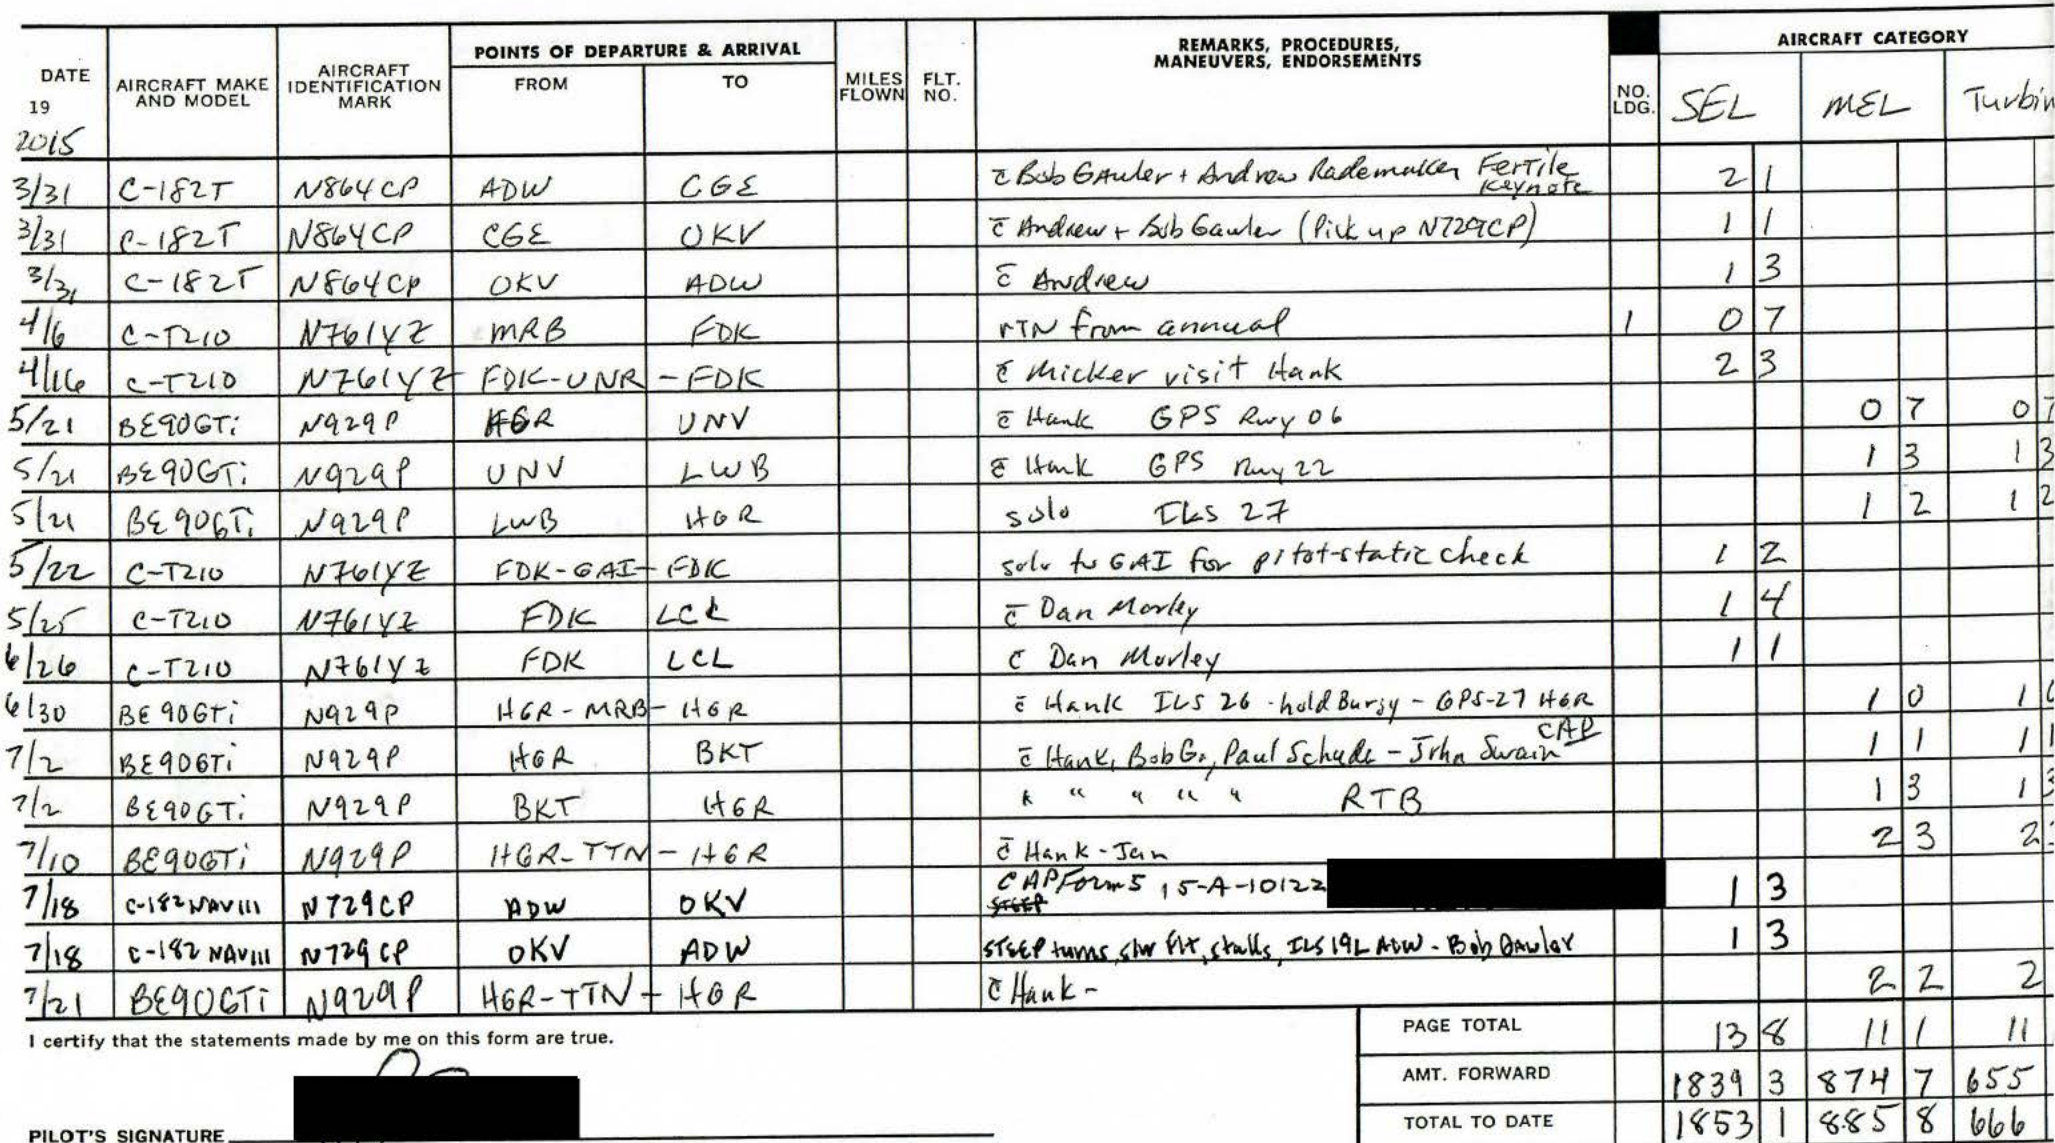 POINTS OF DEPARTURE & ARRIVAL REMARKS, PROCEDURES, MANEUVERS, ENDORSEMENTS AIRCRAFT CATEGORY
DATE 19 2015 AIRCRAFT MAKE AND MODEL AIRCRAFT IDENTIFICATION MARK FROM TO MILES FLOWN FLT. NO. NO. LDG. SEL MEL Turbin
3/31 C-182T N864CP ADW CGE c̄ Bob Gawler + Andrew Rademaker Fertile Keynote 2 1
3/31 C-182T N864CP CGE OKV c̄ Andrew + Bob Gawler (Pick up N729CP) 1 1
3/31 C-182T N864CP OKV ADW c̄ Andrew 1 3
4/6 C-T210 N761YZ MRB FDK RTN from annual 1 0 7
4/16 C-T210 N761YZ FDK-UNR - FDK c̄ Micker visit Hank 2 3
5/21 BE90GTi N929P HGR UNV c̄ Hank GPS Rwy 06 0 7 0 7
5/21 BE90GTi N929P UNV LWB c̄ Hank GPS Rwy 22 1 3 1 3
5/21 BE90GTi N929P LWB HGR solo ILS 27 1 2 1 2
5/22 C-T210 N761YZ FDK-GAI- FDK solo to GAI for pitot-static check 1 2
5/25 C-T210 N761YZ FDK LCL c̄ Dan Morley 1 4
6/26 C-T210 N761YZ FDK LCL c̄ Dan Morley 1 1
6/30 BE90GTi N929P HGR-MRB- HGR c̄ Hank ILS 26 - hold Bursy - GPS-27 HGR 1 0 1 0
7/2 BE90GTi N929P HGR BKT c̄ Hank, Bob G., Paul Schude - John Swain CAP 1 1 1 1
7/2 BE90GTi N929P BKT HGR " " " " " RTB 1 3 1 3
7/10 BE90GTi N929P HGR-TTN - HGR c̄ Hank - Jan 2 3 2
7/18 C-182 NAVIII N729CP ADW OKV CAP Form 5 15-A-10122 STEEP 1 3
7/18 C-182 NAVIII N729CP OKV ADW STEEP turns, slw flt, stalls, ILS 19L ADW - Bob Gawler 1 3
7/21 BE90GTi N929P HGR-TTN - HGR c̄ Hank - 2 2 2
I certify that the statements made by me on this form are true. PAGE TOTAL 13 8 11 1 11
AMT. FORWARD 1839 3 874 7 655
PILOT'S SIGNATURE TOTAL TO DATE 1853 1 885 8 666